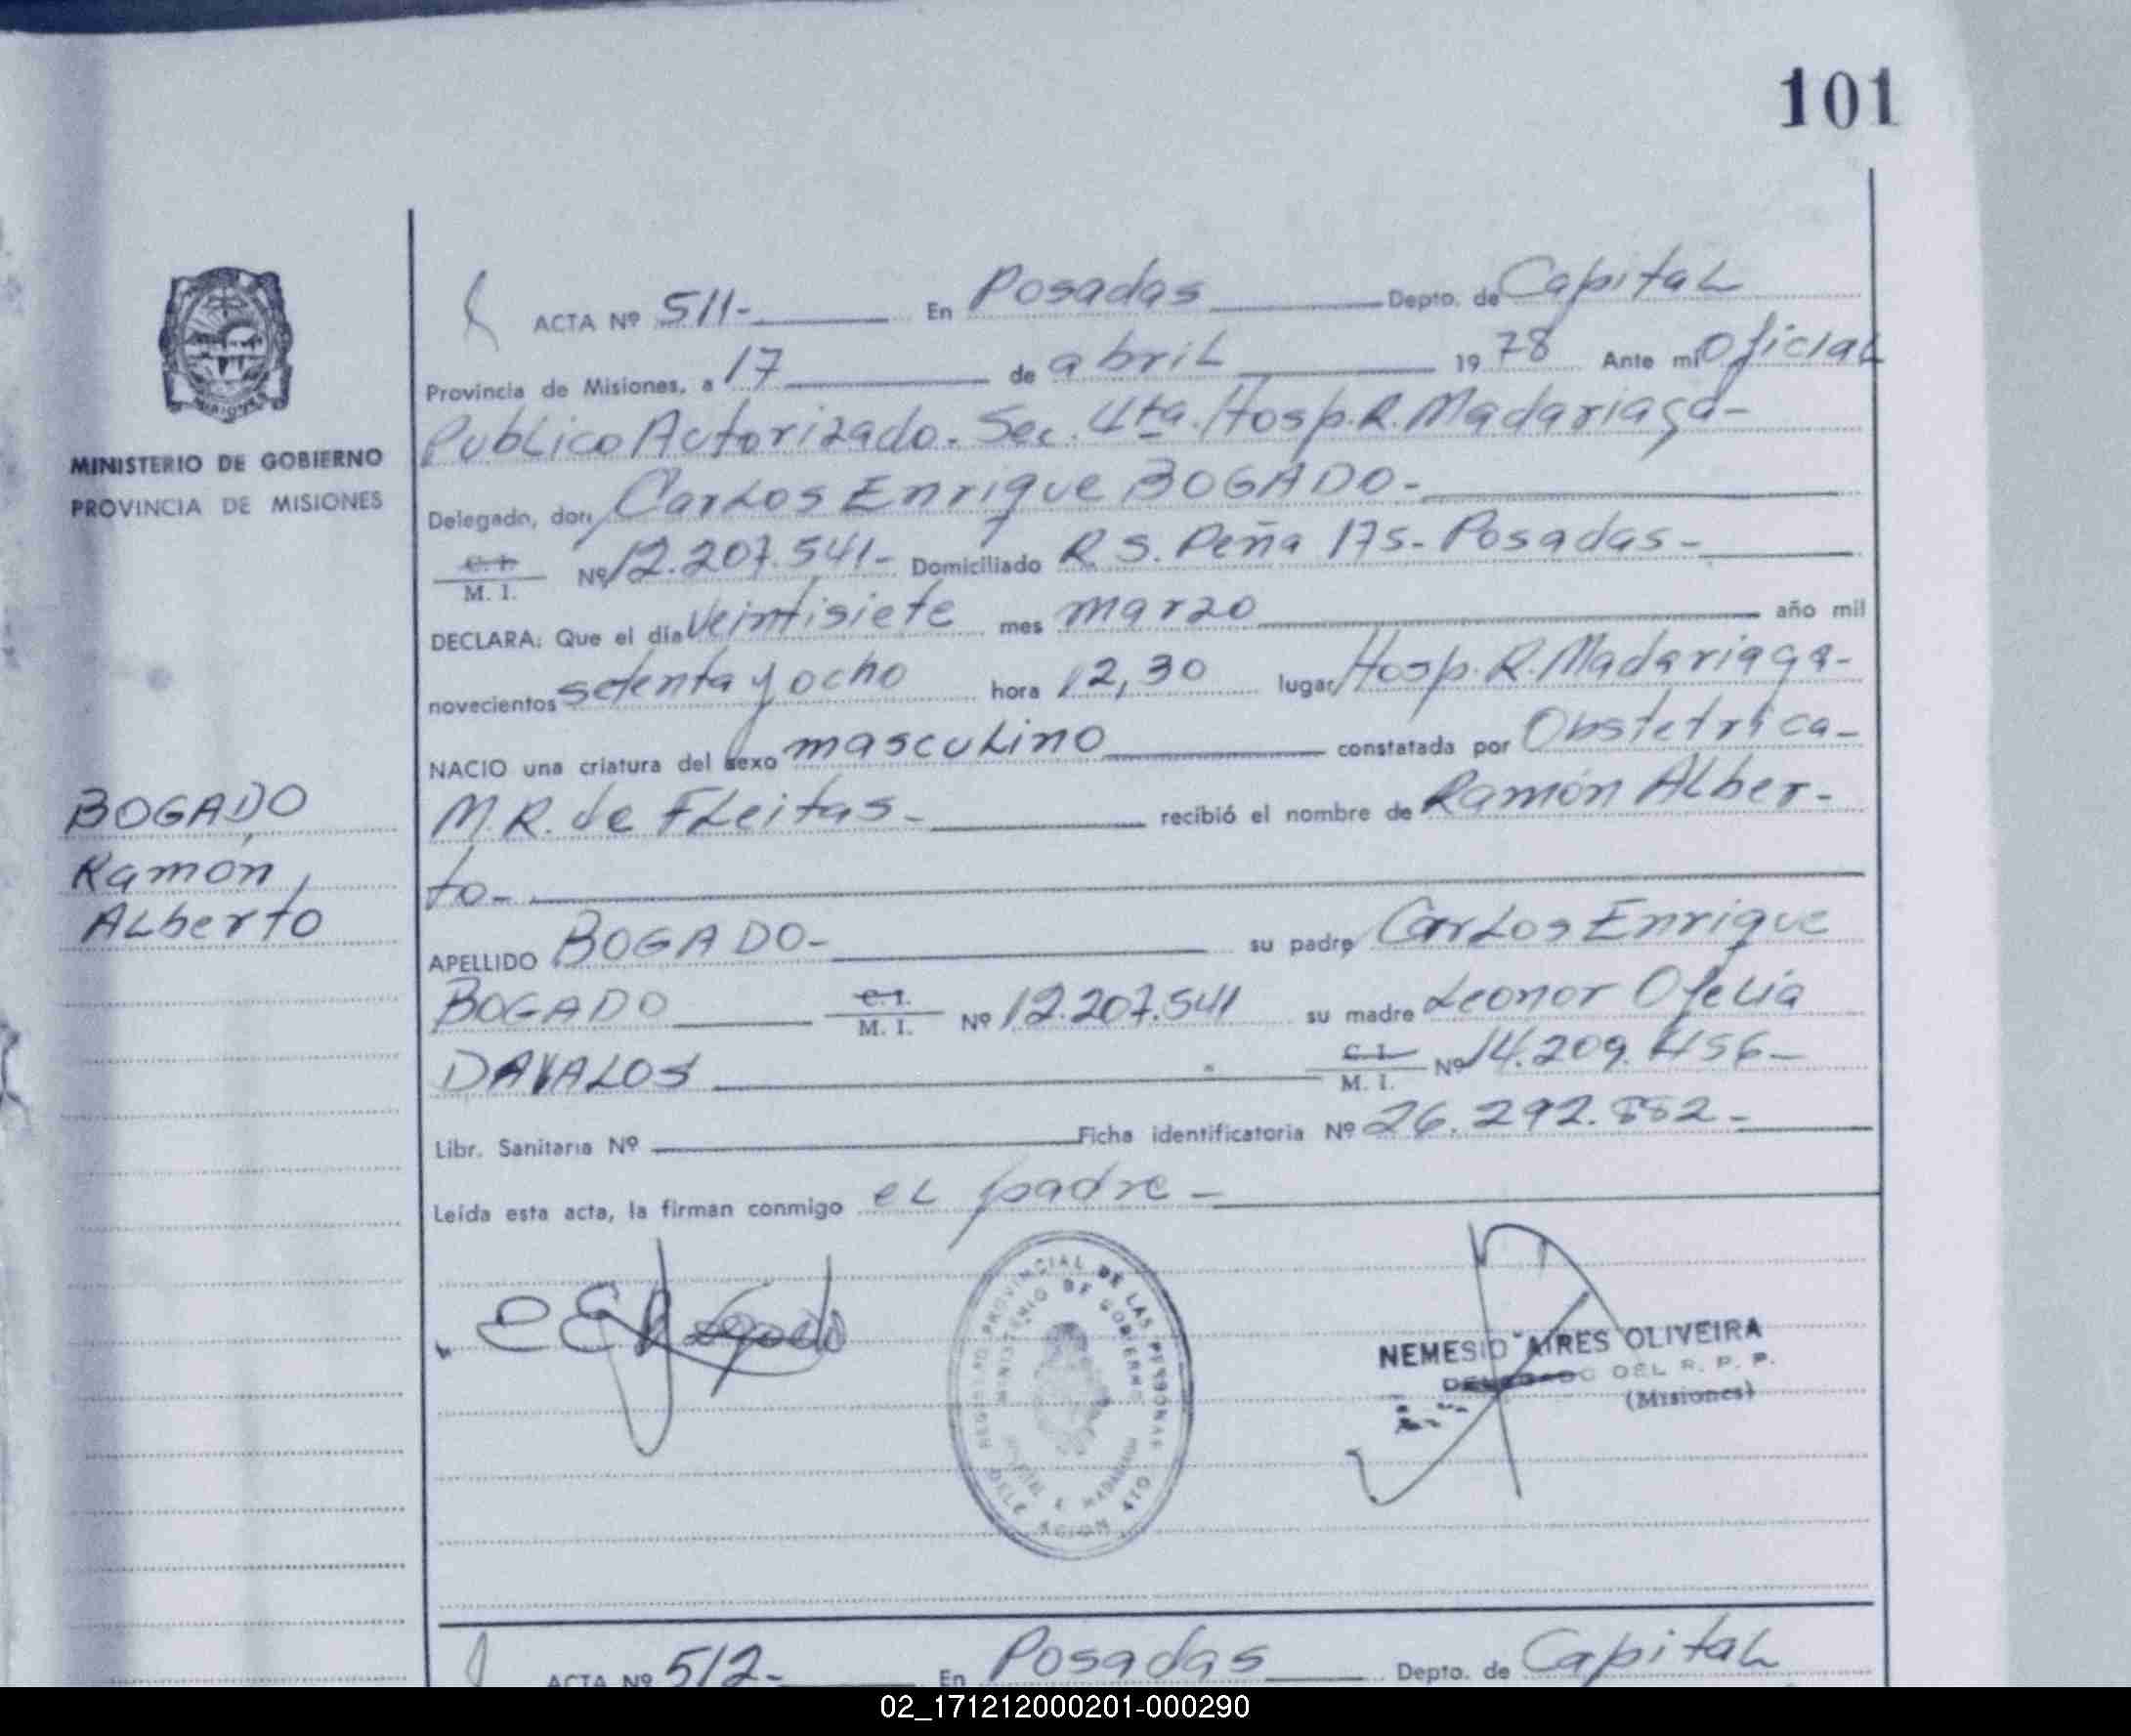 101
MISIONES
MINISTERIO DE GOBIERNO
PROVINCIA DE MISIONES
ACTA Nº 511- En Posadas Depto. de Capital
Provincia de Misiones, a 17 de abril 1978 Ante mi Oficial
Publico Autorizado. Sec. 4ta. Hosp. R. Madariaga-
Delegado, don Carlos Enrique BOGADO-
C. I.
M. I. Nº 12.207.541- Domiciliado R. S. Peña 175- Posadas-
DECLARA: Que el día Veintisiete mes marzo año mil
novecientos setenta y ocho hora 12,30 lugar Hosp. R. Madariaga-
NACIO una criatura del sexo masculino constatada por Obstetrica-
M. R. de Fleitas- recibió el nombre de Ramón Alber-
to-
APELLIDO BOGADO- su padre Carlos Enrique
BOGADO C. I. M. I. Nº 12.207.541 su madre Leonor Ofelia
DAVALOS C. I. M. I. Nº 14.209.456-
Libr. Sanitaria Nº Ficha identificatoria Nº 26.292.882-
Leída esta acta, la firman conmigo el padre-
BOGADO
Ramón
Alberto
REGISTRO PROVINCIAL DE LAS PERSONAS
MINISTERIO DE GOBIERNO
NEMESIO AIRES OLIVEIRA
DELEGADO DEL R. P. P.
(Misiones)
ACTA Nº 512- En Posadas Depto. de Capital
02_171212000201-000290